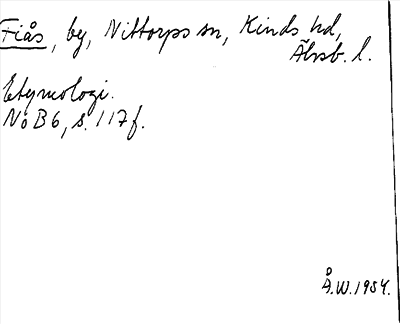 Fiås, by, Nittorps sn, Kinds hd,
Älvsb. l.
Etymologi.
NoB 6, s. 117 f.
Å.W. 1954.